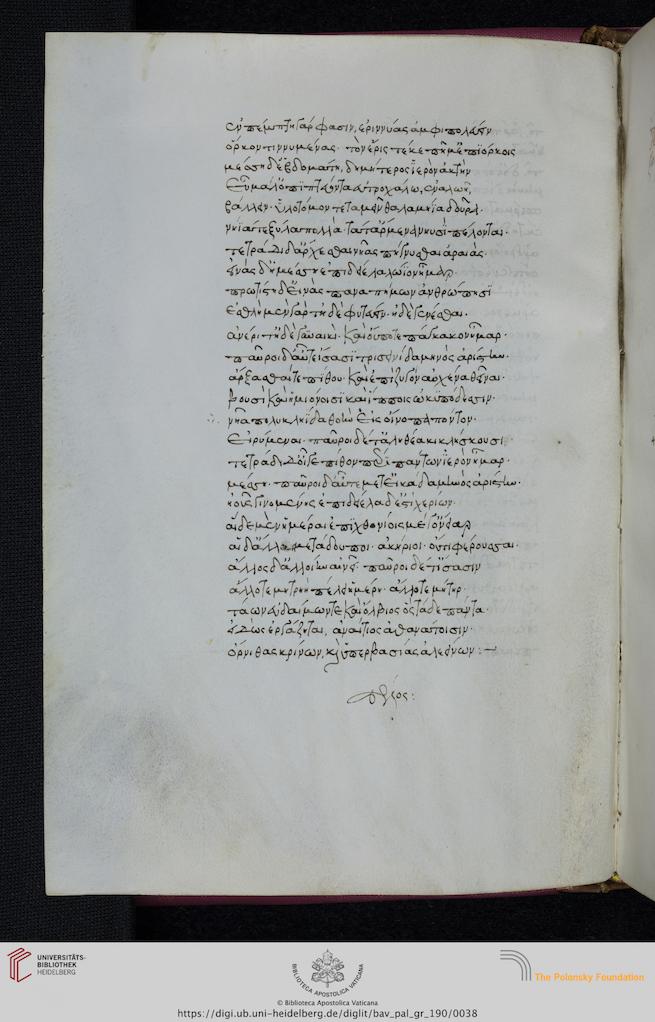 ἐν πέμπτῃ γάρ φασιν, ἐριννύας ἀμφιπολεύειν
ὅρκον τιννυμένας· τὸν ἔρις τέκε πῆμ' ἐπϊόρκοις
μέσσῃ δ' ἑβδομάτῃ, δημήτερος ἱερὸν ἀκτὴν
εὖ μάλ' ὀπϊπτεύοντα ἐϋτροχάλω, ἐν ἀλωῆ,
βάλλειν· ὑλοτόμον τε ταμεῖν θαλαμήϊα δοῦρα·
νήϊά τε ξύλα πολλὰ· τά τ' ἄρμενα νηυσὶ πέλονται·
τετράδι δ' ἄρχεσθαι νῆας πήγνυσθαι ἀραιάς·
εἰνὰς δ' ἡ μέσση ἐπὶ δείελα λώϊον ἦμαρ·
πρωτίστη δ' εἰνὰς παναπήμων ἀνθρώποισϊ
ἐσθλὴ μὲν γὰρ τῇδε φυτεύειν· ἠδὲ γενέσθαι·
ἀνέρι τ' ἠδὲ γυναικὶ· καὶ οὔποτε πάγκακον ἦμαρ·
παῦροι δ' αὖτε ἴσασϊ τρισεινάδα μηνὸς ἀρίστην·
ἄρξασθαί τε πίθου· καὶ ἐπὶ ζυγὸν αὐχένα θεῖναι·
βουσὶ καὶ ἡμιόνοισϊ καὶ ἵπποις ὠκυπόδεσσιν·
νῆα πολυκλήϊδα θοὴν εἰς οἴνοπα πόντον·
εἰρύμεναι· παῦροι δέ τ' ἀληθέα κικλήσκουσι·
τετράδι δ' οἶγε πίθον περὶ πάντων ἱερὸν ἦμαρ·
μέσση· παῦροι δ' αὖτε μετ' εἰκάδα μηνὸς ἀρίστην·
ἠοῦς γινομένης ἐπὶ δείελα δ' ἐστὶ χερίων·
αἵδε μὲν ἡμέραι ἐπϊχθονίοις μέγ' ὄνειαρ
αἱ δ' ἄλλαι μετάδουποι· ἀκήριοι· οὔτι φέρουσαι·
ἄλλος δ' ἀλλοίην αἰνεῖ· παῦροι δέ τ' ἴσασιν
ἄλλοτε μητρυιὴ πέλει ἡμέρη· ἄλλοτε μήτηρ·
τάων εὐδαίμων τε καὶ ὄλβιος ὃς τάδε πάντα·
εἰδὼς ἐργάζηται, ἀναίτιος ἀθανάτοισιν·
ὄρνιθας κρίνων, καὶ ὑπερβασίας ἀλεείνων :—
τέλος :
UNIVERSITÄTS-
BIBLIOTHEK
HEIDELBERG
BIBLIOTECA APOSTOLICA VATICANA
The Polonsky Foundation
© Biblioteca Apostolica Vaticana
https://digi.ub.uni-heidelberg.de/diglit/bav_pal_gr_190/0038